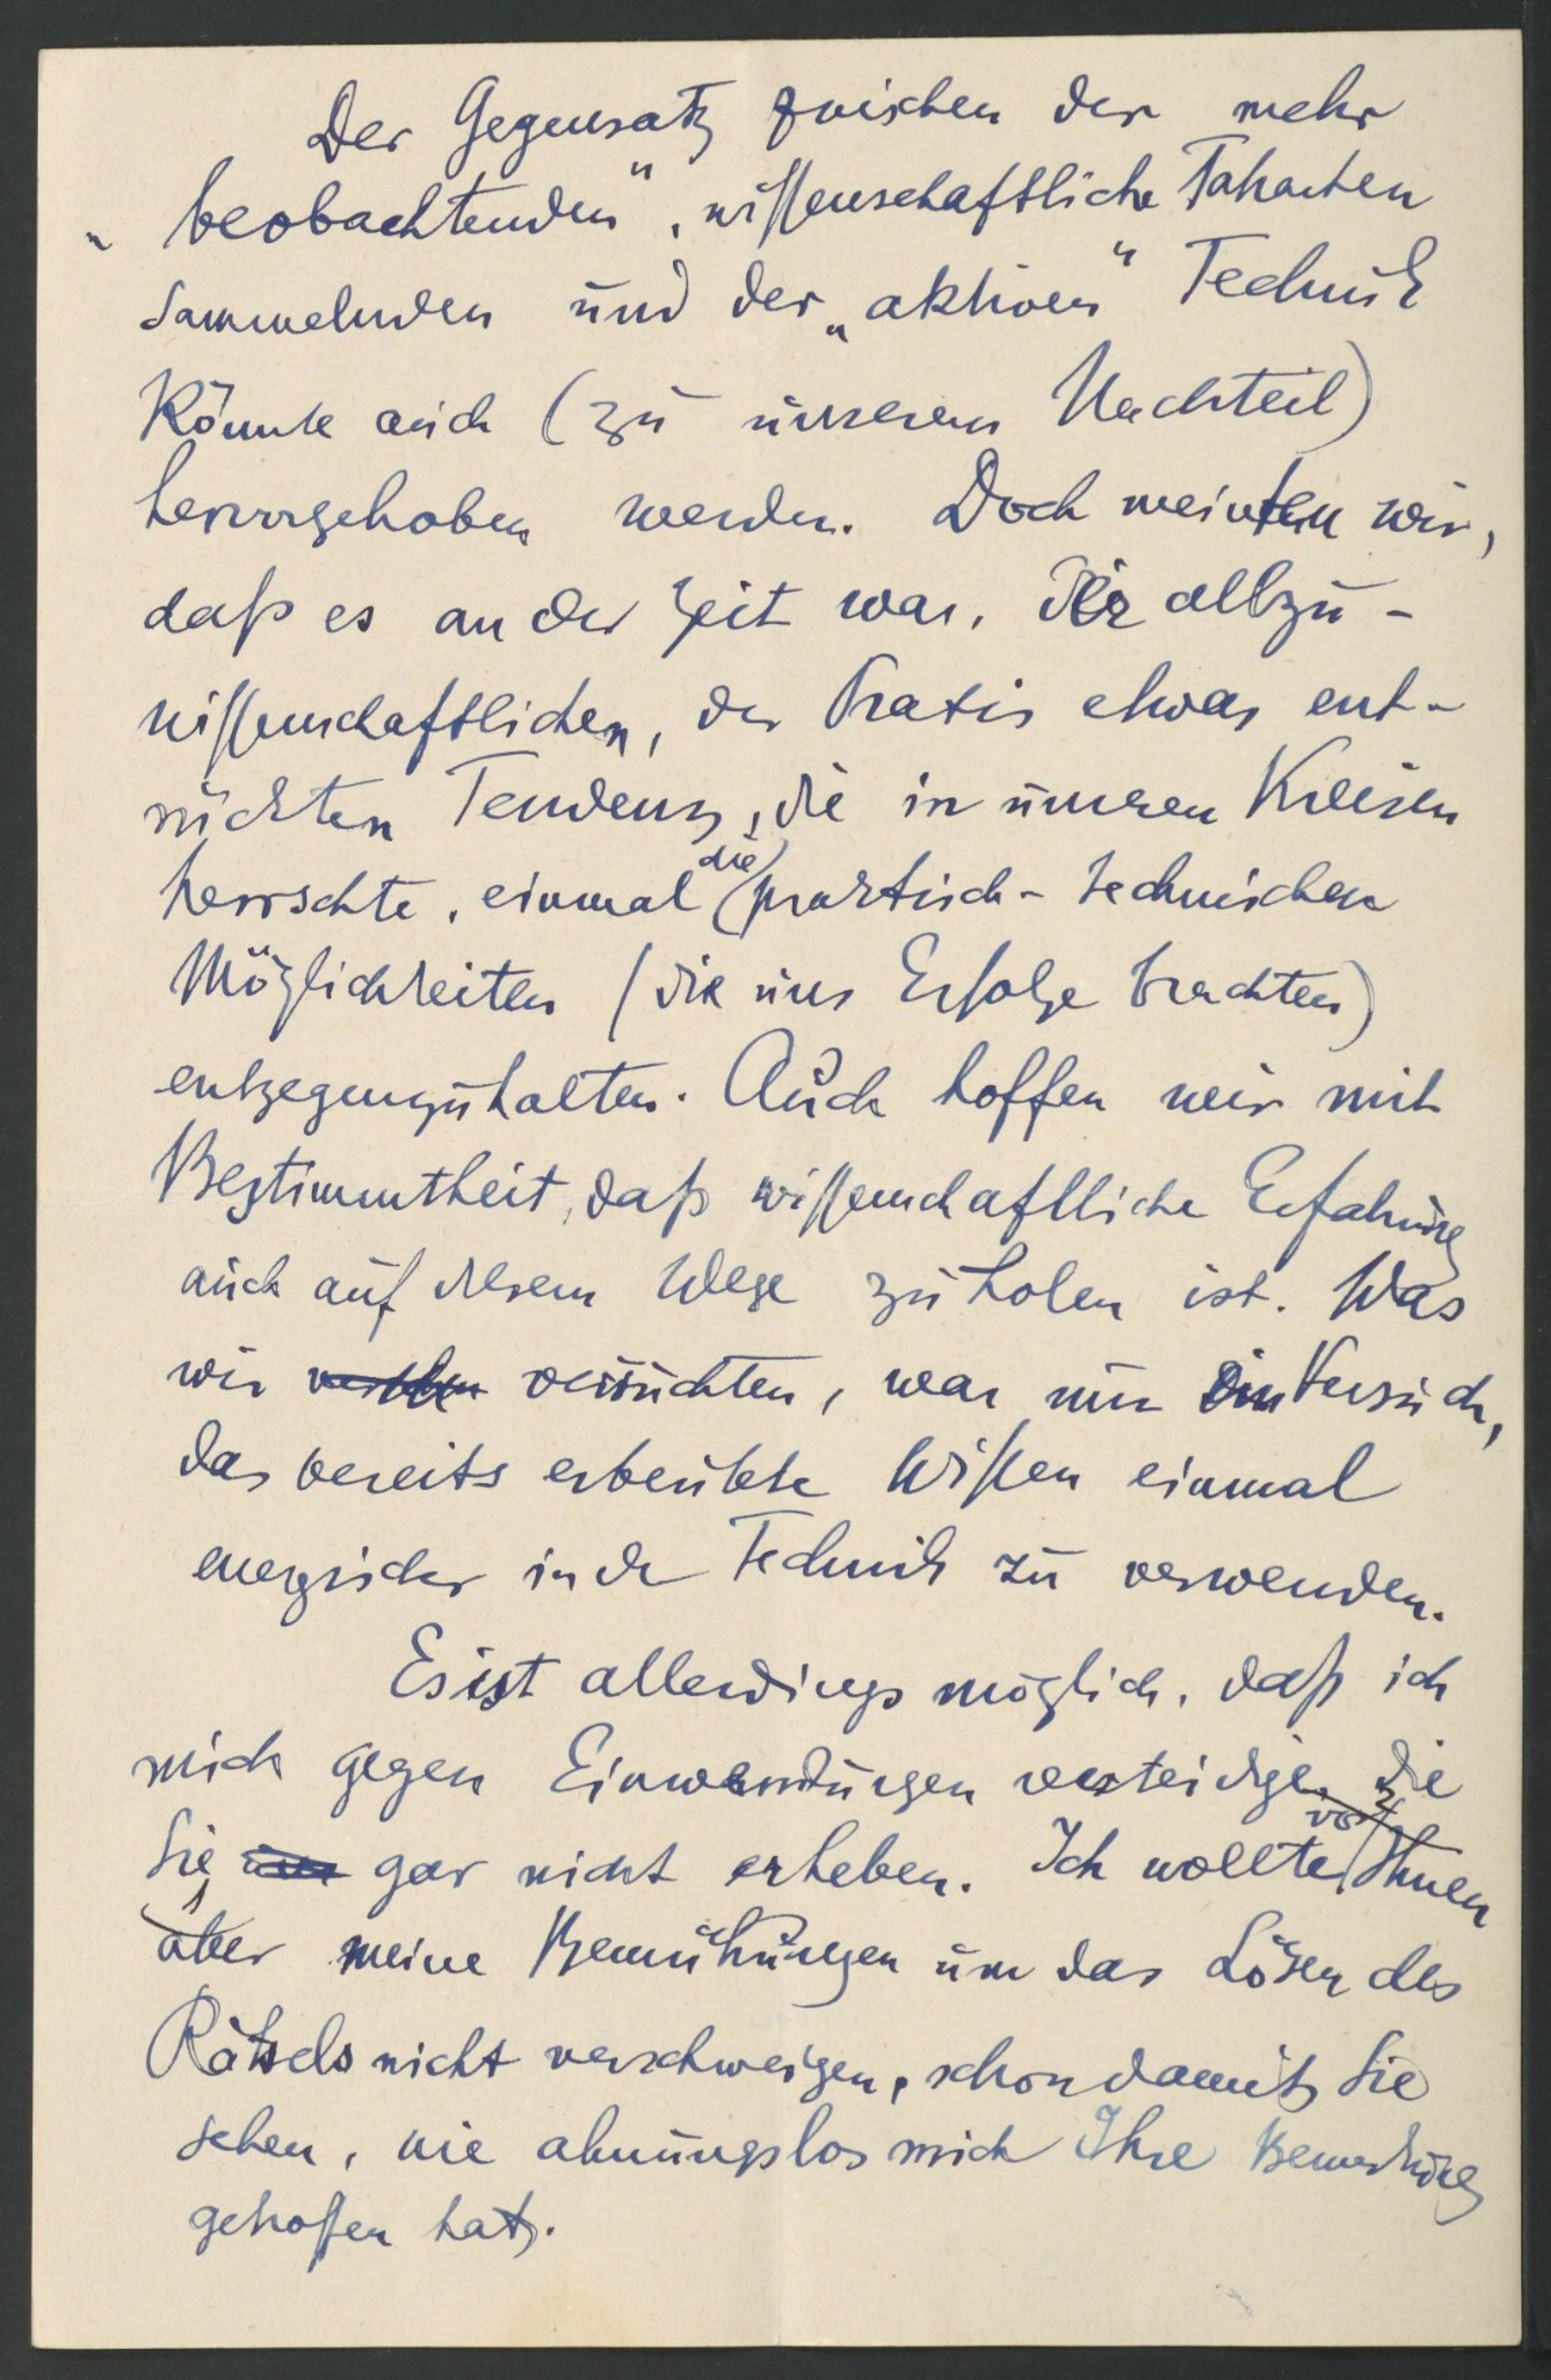 Der Gegensatz zwischen der mehr
„beobachtenden“, wissenschaftliche Tatsachen
sammelnden und der „aktiven“ Technik
könnte auch (zu unserem Nachteil)
hervorgehoben werden. Doch meinten wir,
daß es an der Zeit war, der allzu-
wissenschaftlichen, der Praxis etwas ent-
rückten Tendenz, die in unseren Kreisen
herrschte, einmal die praktisch-technischen
Möglichkeiten (die uns Erfolge brachten)
entgegenzuhalten. Auch hoffen wir mit
Bestimmtheit, daß wissenschaftliche Erfahrung
auch auf diesem Wege zu holen ist. Was
wir versuchten, war nur ein Versuch,
das bereits erbeutete Wissen einmal
energischer in der Technik zu verwenden.
Es ist allerdings möglich, daß ich
mich gegen Einwendungen verteidige, die
Sie gar nicht erheben. Ich wollte vor Ihnen
aber meine Bemühungen um das Lösen des
Rätsels nicht verschweigen, schon damit Sie
sehen, wie ahnungslos mich Ihre Bemerkung
getroffen hat.